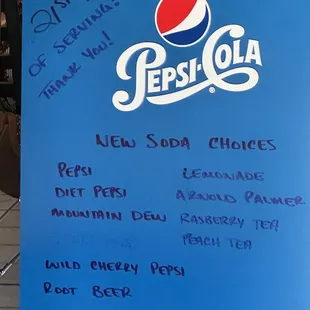 OF SERVING!
THANK YOU!
PEPSI-COLA
NEW SODA CHOICES
PEPSI
LEMONADE
DIET PEPSI
ARNOLD PALMER
MOUNTAIN DEW
RASBERRY TEA
PEACH TEA
WILD CHERRY PEPSI
ROOT BEER